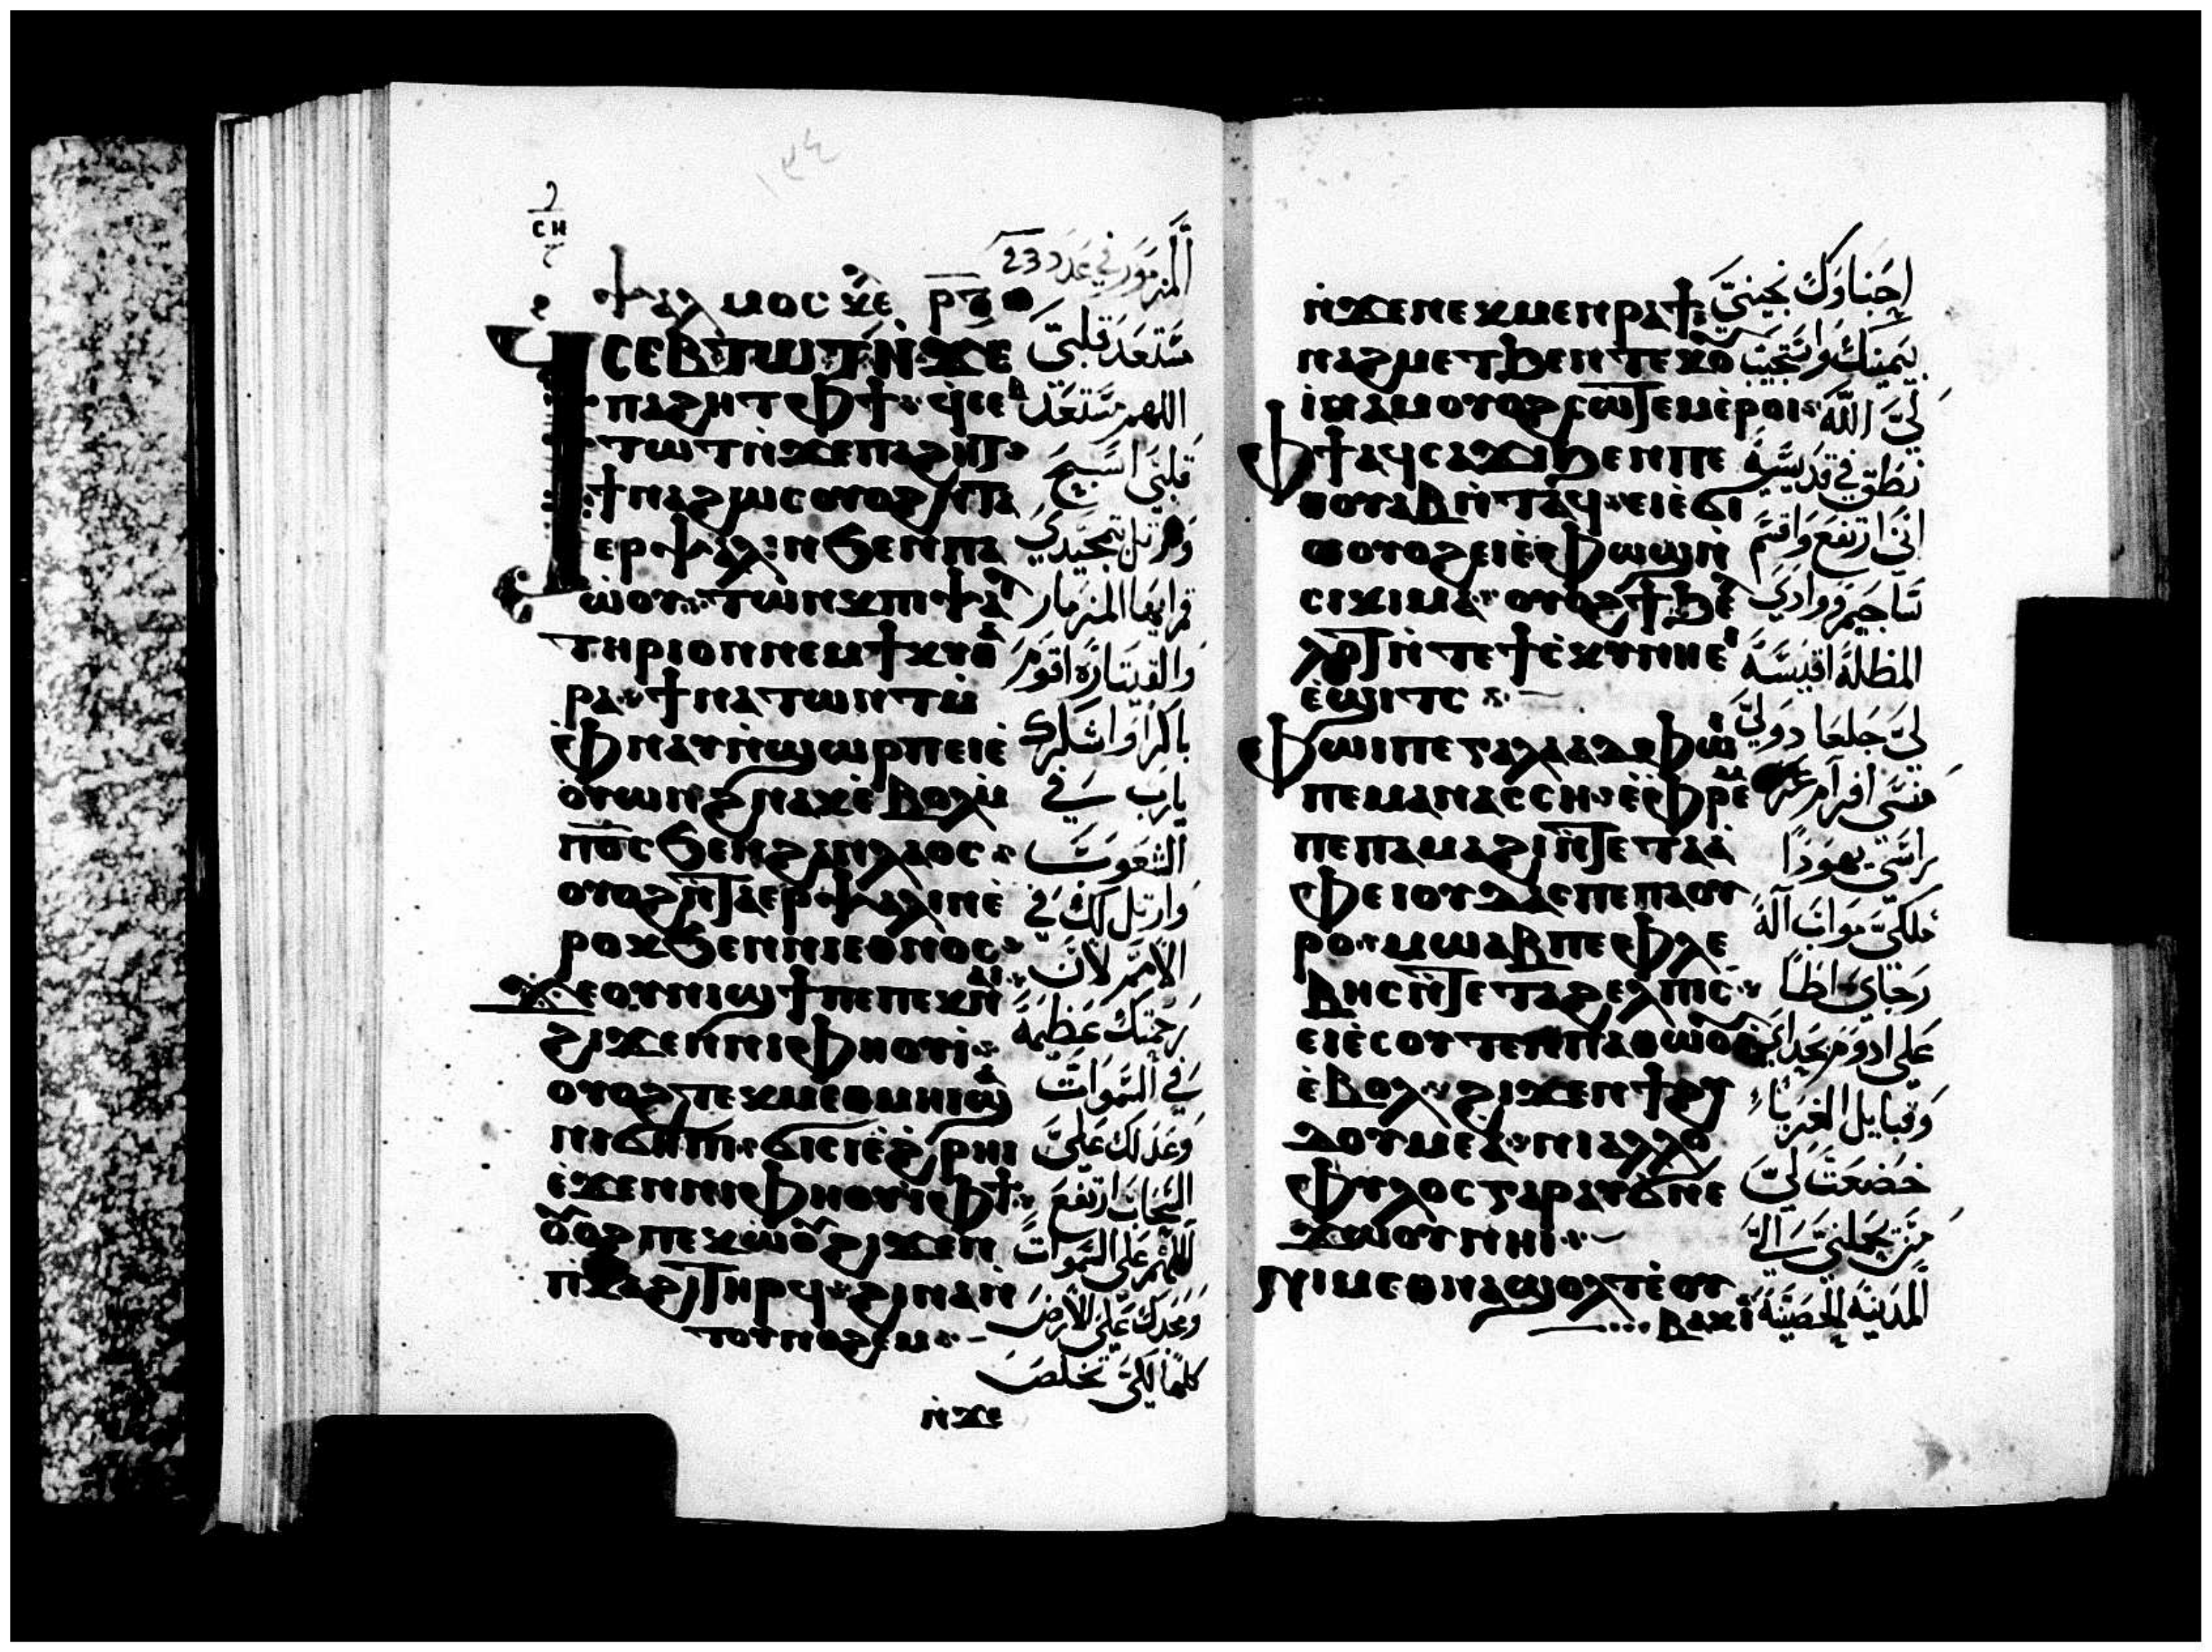 ⲥⲏ
ⲯⲁⲗⲙⲟⲥ
المزمور في عدد 23
ϥⲥⲉⲃⲧⲱⲧ ⲛ̀ϫⲉ
ⲡⲁϩⲏⲧ ⲫϯ
ⲧⲱⲧ ⲛ̀ϫⲉ ⲡⲁϩⲏⲧ
ϯⲛⲁϩⲱⲥ ⲟⲩⲟϩ ⲛ̀ⲧⲁ
ⲉⲣⲯⲁⲗⲓⲛ ϧⲉⲛ ⲡⲁ
ⲱ̀ⲟⲩ ⲧⲱⲛⲕ ⲡⲓⲯⲁⲗ
ⲧⲏⲣⲓⲟⲛ ⲛⲉⲙ ϯⲕⲩⲑⲁ
ⲣⲁ ϯⲛⲁⲧⲱⲛⲧ ⲙ̀
ⲫⲛⲁⲩ ⲛ̀ϣⲱⲣⲡ ⲉⲓⲉ̀
ⲟ̀ⲩⲱⲛϩ ⲛⲁⲕ ⲉ̀ⲃⲟⲗ
ⲡ⳪ ϧⲉⲛ ϩⲁⲛⲗⲁⲟⲥ
ⲟⲩⲟϩ ⲛ̀ⲧⲁⲉⲣⲯⲁⲗⲓⲛ ⲉ̀
ⲣⲟⲕ ϧⲉⲛ ⲛⲓⲉⲑⲛⲟⲥ
ϫⲉ ⲟⲩⲛⲓϣϯ ⲡⲉ ⲡⲉⲕⲛⲁⲓ
ϩⲓϫⲉⲛ ⲛⲓⲫⲏⲟⲩⲓ̀
ⲟⲩⲟϩ ⲧⲉⲕⲙⲉⲑⲙⲏⲓ ϣⲁ
ⲛⲓϭⲏⲡⲓ ϭⲓⲥⲓ ⲉ̀ϩ̀ⲣⲏⲓ
ⲉ̀ϫⲉⲛ ⲛⲓⲫⲏⲟⲩⲓ̀ ⲫϯ
ⲟⲩⲟϩ ⲡⲉⲕⲱ̀ⲟⲩ ϩⲓϫⲉⲛ
ⲡ̀ⲕⲁϩⲓ ⲧⲏⲣϥ ϩⲓⲛⲁ ⲛ̀
ⲧⲟⲩⲛⲟϩⲉⲙ
ⲛ̀ϫⲉ
مستعد قلبي
اللهم مستعد
قلبي اسبح
وارتل تمجيدي
قم ايها المزمار
والقيثارة اقوم
باكرا واشكرك
يارب في
الشعوب
وارتل لك في
الأمم لأن
رحمتك عظيمة
في السموات
وعدلك علي
السحاب ارتفع
اللهم علي السموات
ومجدك علي الأرض
كلها لكي تخلص
ⲛ̀ϫⲉ ⲛⲉⲕⲙⲉⲛⲣⲁϯ
ⲛⲁϩⲙⲉⲧ ϧⲉⲛ ⲧⲉⲕⲟ̀ⲩ
ⲓ̀ⲛⲁⲙ ⲟⲩⲟϩ ⲥⲱⲧⲉⲙ ⲉ̀ⲣⲟⲓ
ⲫϯ ⲁϥⲥⲁϫⲓ ϧⲉⲛ ⲡⲉ
ⲑⲟⲩⲁⲃ ⲛ̀ⲧⲁϥ ⲉⲓⲉ̀ϭⲓ
ⲥⲓ ⲟⲩⲟϩ ⲉⲓⲉ̀ⲫⲱϣ ⲛ̀
ⲥⲓⲕⲓⲙⲁ ⲟⲩⲟϩ ϯϧⲉ
ⲗⲗⲟⲧ ⲛ̀ⲧⲉ ϯⲥ̀ⲕⲩⲛⲏ ⲉ
ⲉ̀ϣⲓⲧⲥ
ⲫⲱⲓ ⲡⲉ ⲅⲁⲗⲁⲁⲇ ⲫⲱⲓ
ⲡⲉ ⲙⲁⲛⲁⲥⲥⲏ ⲉ̀ⲫⲣⲉⲙ
ⲡⲉ ⲡⲁⲙⲁϩⲓ ⲛ̀ⲧⲉ ⲧⲁⲁ̀
ⲫⲉ ⲓⲟⲩⲇⲁⲥ ⲡⲉ ⲡⲁⲟⲩ
ⲣⲟ ⲙⲱⲁⲃ ⲡⲉ ⲫⲗⲉ
ⲃⲏⲥ ⲛ̀ⲧⲉ ⲧⲁϩⲉⲗⲡⲓⲥ
ⲉⲓⲉ̀ⲥⲟⲩⲧⲉⲛ ⲡⲁⲑⲱⲟⲩⲓ
ⲉ̀ⲃⲟⲗ ϩⲓϫⲉⲛ ϯϩⲩ
ⲇⲟⲩⲙⲉⲁ ⲛⲓⲁⲗⲗⲟ
ⲫⲩⲗⲟⲥ ⲅⲁⲣ ⲁⲩϭⲛⲉ
ϫⲱⲟⲩ ⲛⲏⲓ
ⲛⲓⲙ ⲉⲑⲛⲁϣⲟⲗⲧ ⲉ̀ⲟⲩ
ⲃⲁⲕⲓ
احباوك نجيني
بيمينك واستجيب
لي الله
نطق في قديسيه
اني ارتفع واقسم
ساجيم ووادي
المظلة اقيسه
لي جلعاد ولي
منسي افرام عز
راسي يهودا
ملكي مواب آلة
رجاي اطا
علي ادوم بحداي
وقبايل الغرباء
خضعت لي
من يحملني الي
المدينة الحصينة